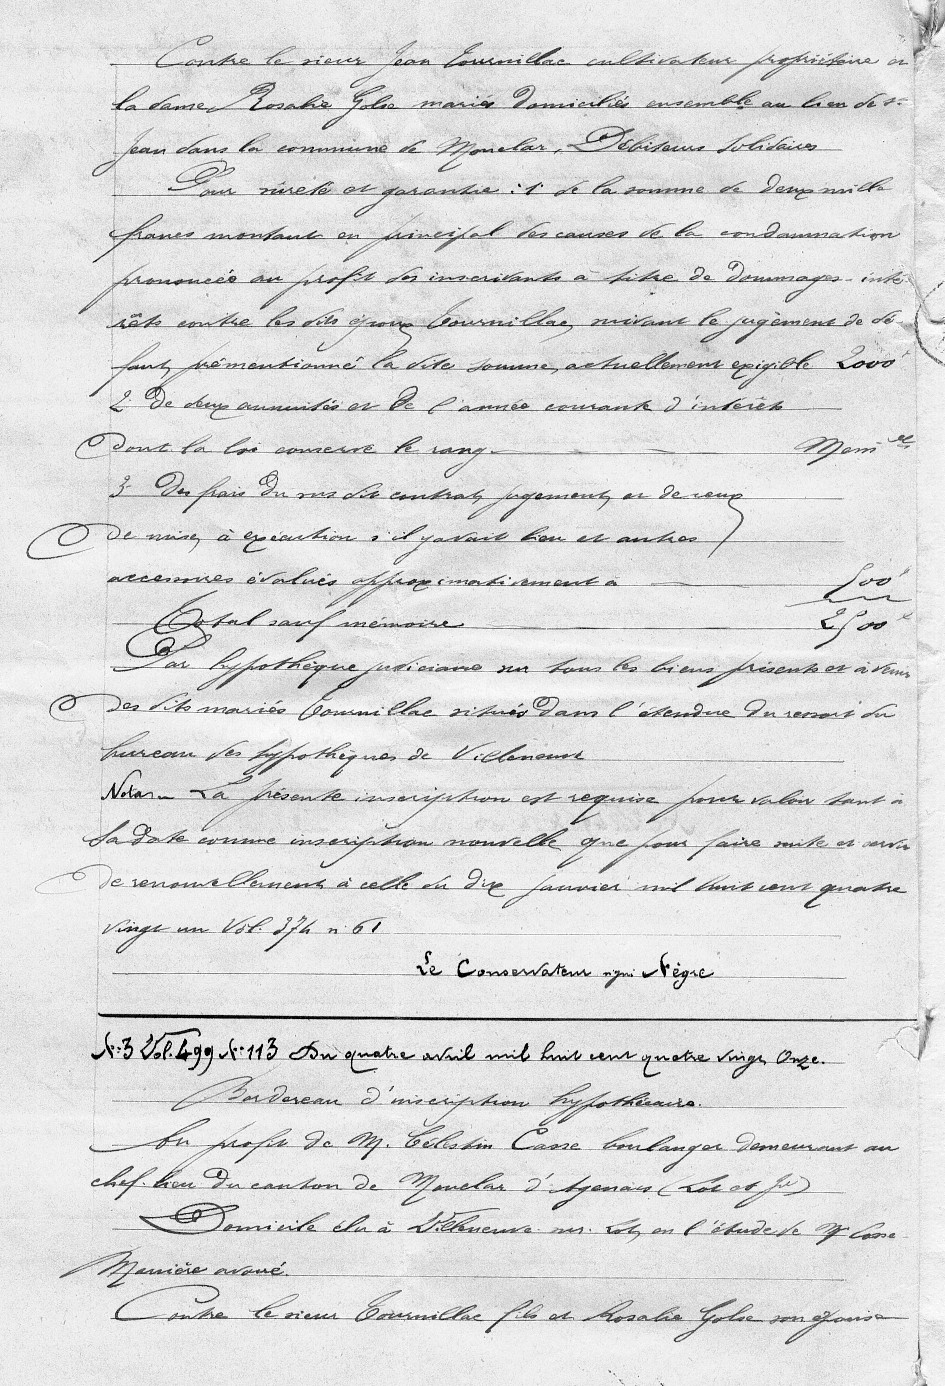 Contre le sieur Jean Tournillac cultivateur propriétaire et
la dame Rosalie Golse mariés domiciliés ensemble au lieu de St
Jean dans la commune de Monclar, Débiteurs solidaires
Pour sûreté et garantie : 1° de la somme de deux mille
francs montant en principal des causes de la condamnation
prononcée au profit des inscrivants à titre de dommages-inté
rêts contre les dits époux Tournillac, suivant le jugement de dé
faut, prémentionné la dite somme, actuellement exigible 2000f
2° De deux annuités et de l'année courante d'intérêts
dont la loi conserve le rang. Mem
3° Des frais du sus dit contrat, jugement, et de ceux
de mise, à exécution s'il y avait lieu et autres
accessoires évalués approximativement à 500f
Total sauf mémoire 2500f
Par hypothèque judiciaire sur tous les biens présents et à venir
des dits mariés Tournillac situés dans l'étendue du ressort du
bureau des hypothèques de Villeneuve
Nota La présente inscription est requise pour valoir tant à
Sa date comme inscription nouvelle, que pour faire suite et servir
de renouvellement à celle du dix janvier mil huit cent quatre
vingt un Vol. 374 n° 61
Le Conservateur signé Nègre
N°3 Vol. 499 N° 113 Du quatre avril mil huit cent quatre vingt Onze.
Bordereau d'inscription hypothécaire.
Au profit de M. Célestin Casse boulanger demeurant au
chef-lieu du canton de Monclar d'Agenais (Lot et Gne)
Domicile élu à Villeneuve sur Lot, en l'étude de Me Casse
avoué.
Contre le sieur Tournillac fils et Rosalie Golse son épouse